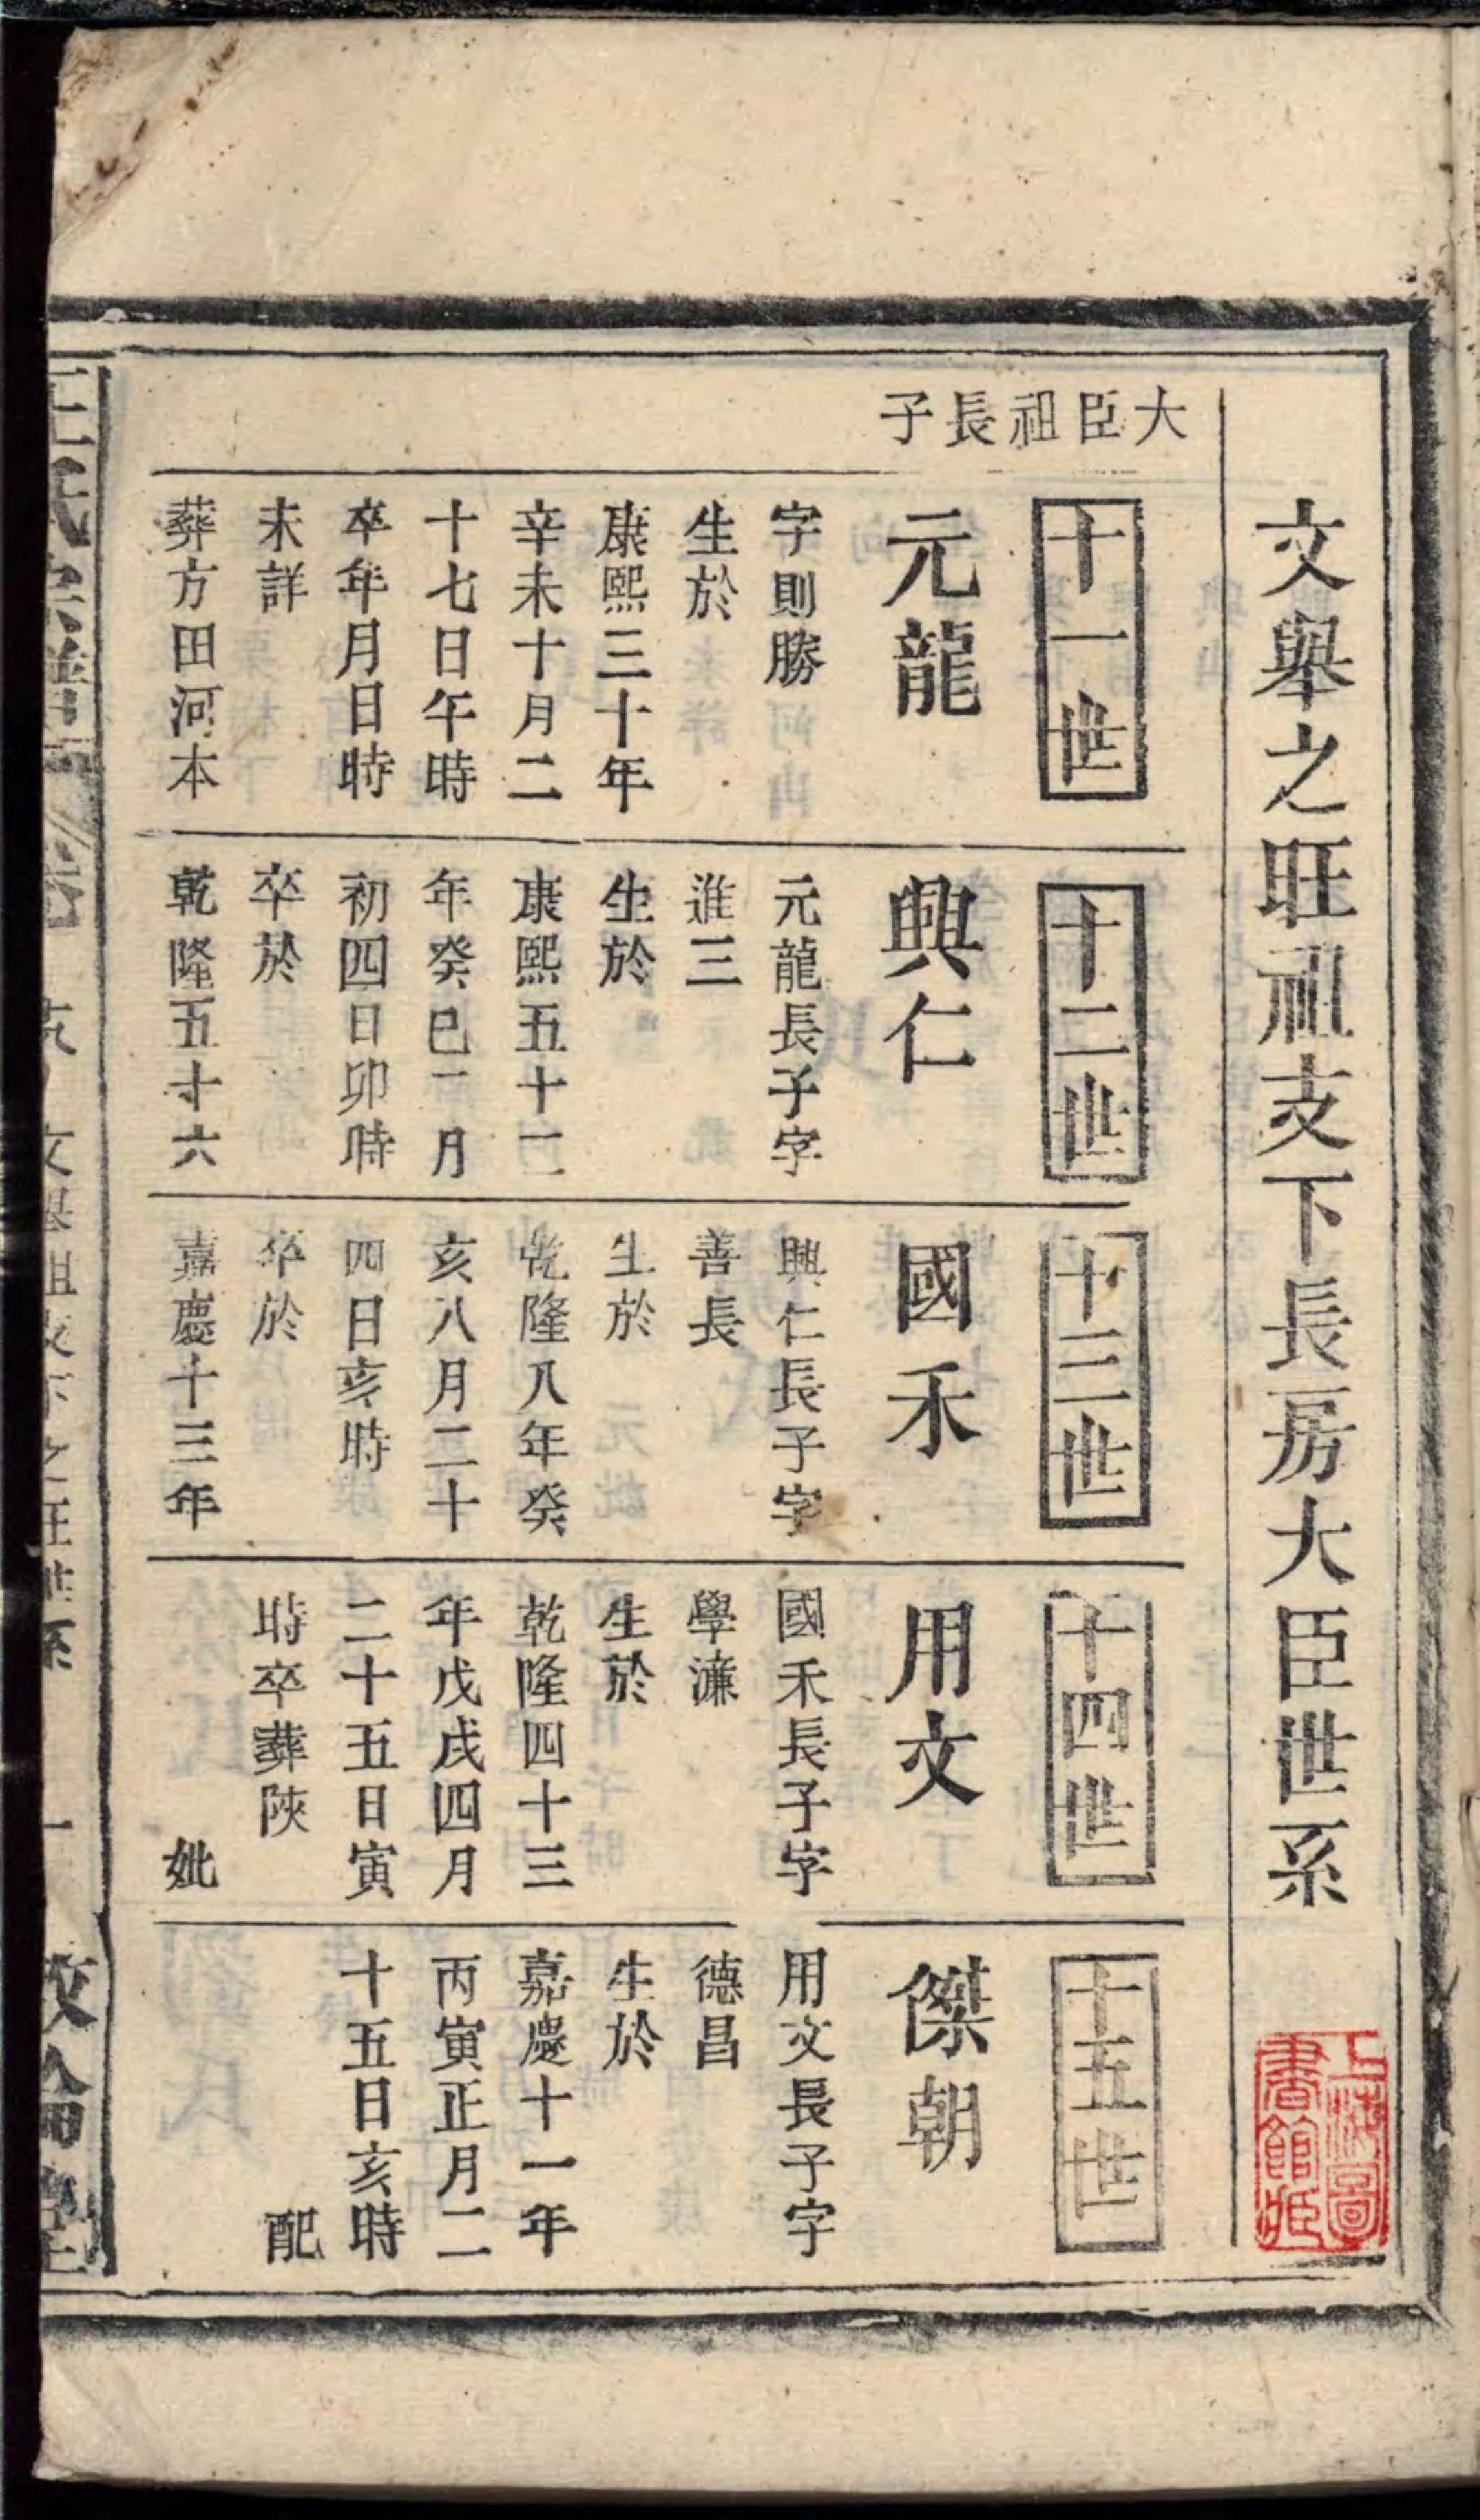 文舉之旺祖支下長房大臣世系
上海圖書館藏
大臣祖長子
十一世
元龍
字則勝
生於
康熙三十年
辛未十月二
十七日午時
卒年月日時
未詳
葬方田河本
十二世
興仁
元龍長子字
進三
生於
康熙五十二
年癸巳一月
初四日卯時
卒於
乾隆五十六
十三世
國禾
興仁長子字
善長
生於
乾隆八年癸
亥八月二十
四日亥時
卒於
嘉慶十三年
十四世
用文
國禾長子字
學濂
生於
乾隆四十三
年戊戌四月
二十五日寅
時卒葬陝
妣
十五世
傑朝
用文長子字
德昌
生於
嘉慶十一年
丙寅正月二
十五日亥時
配